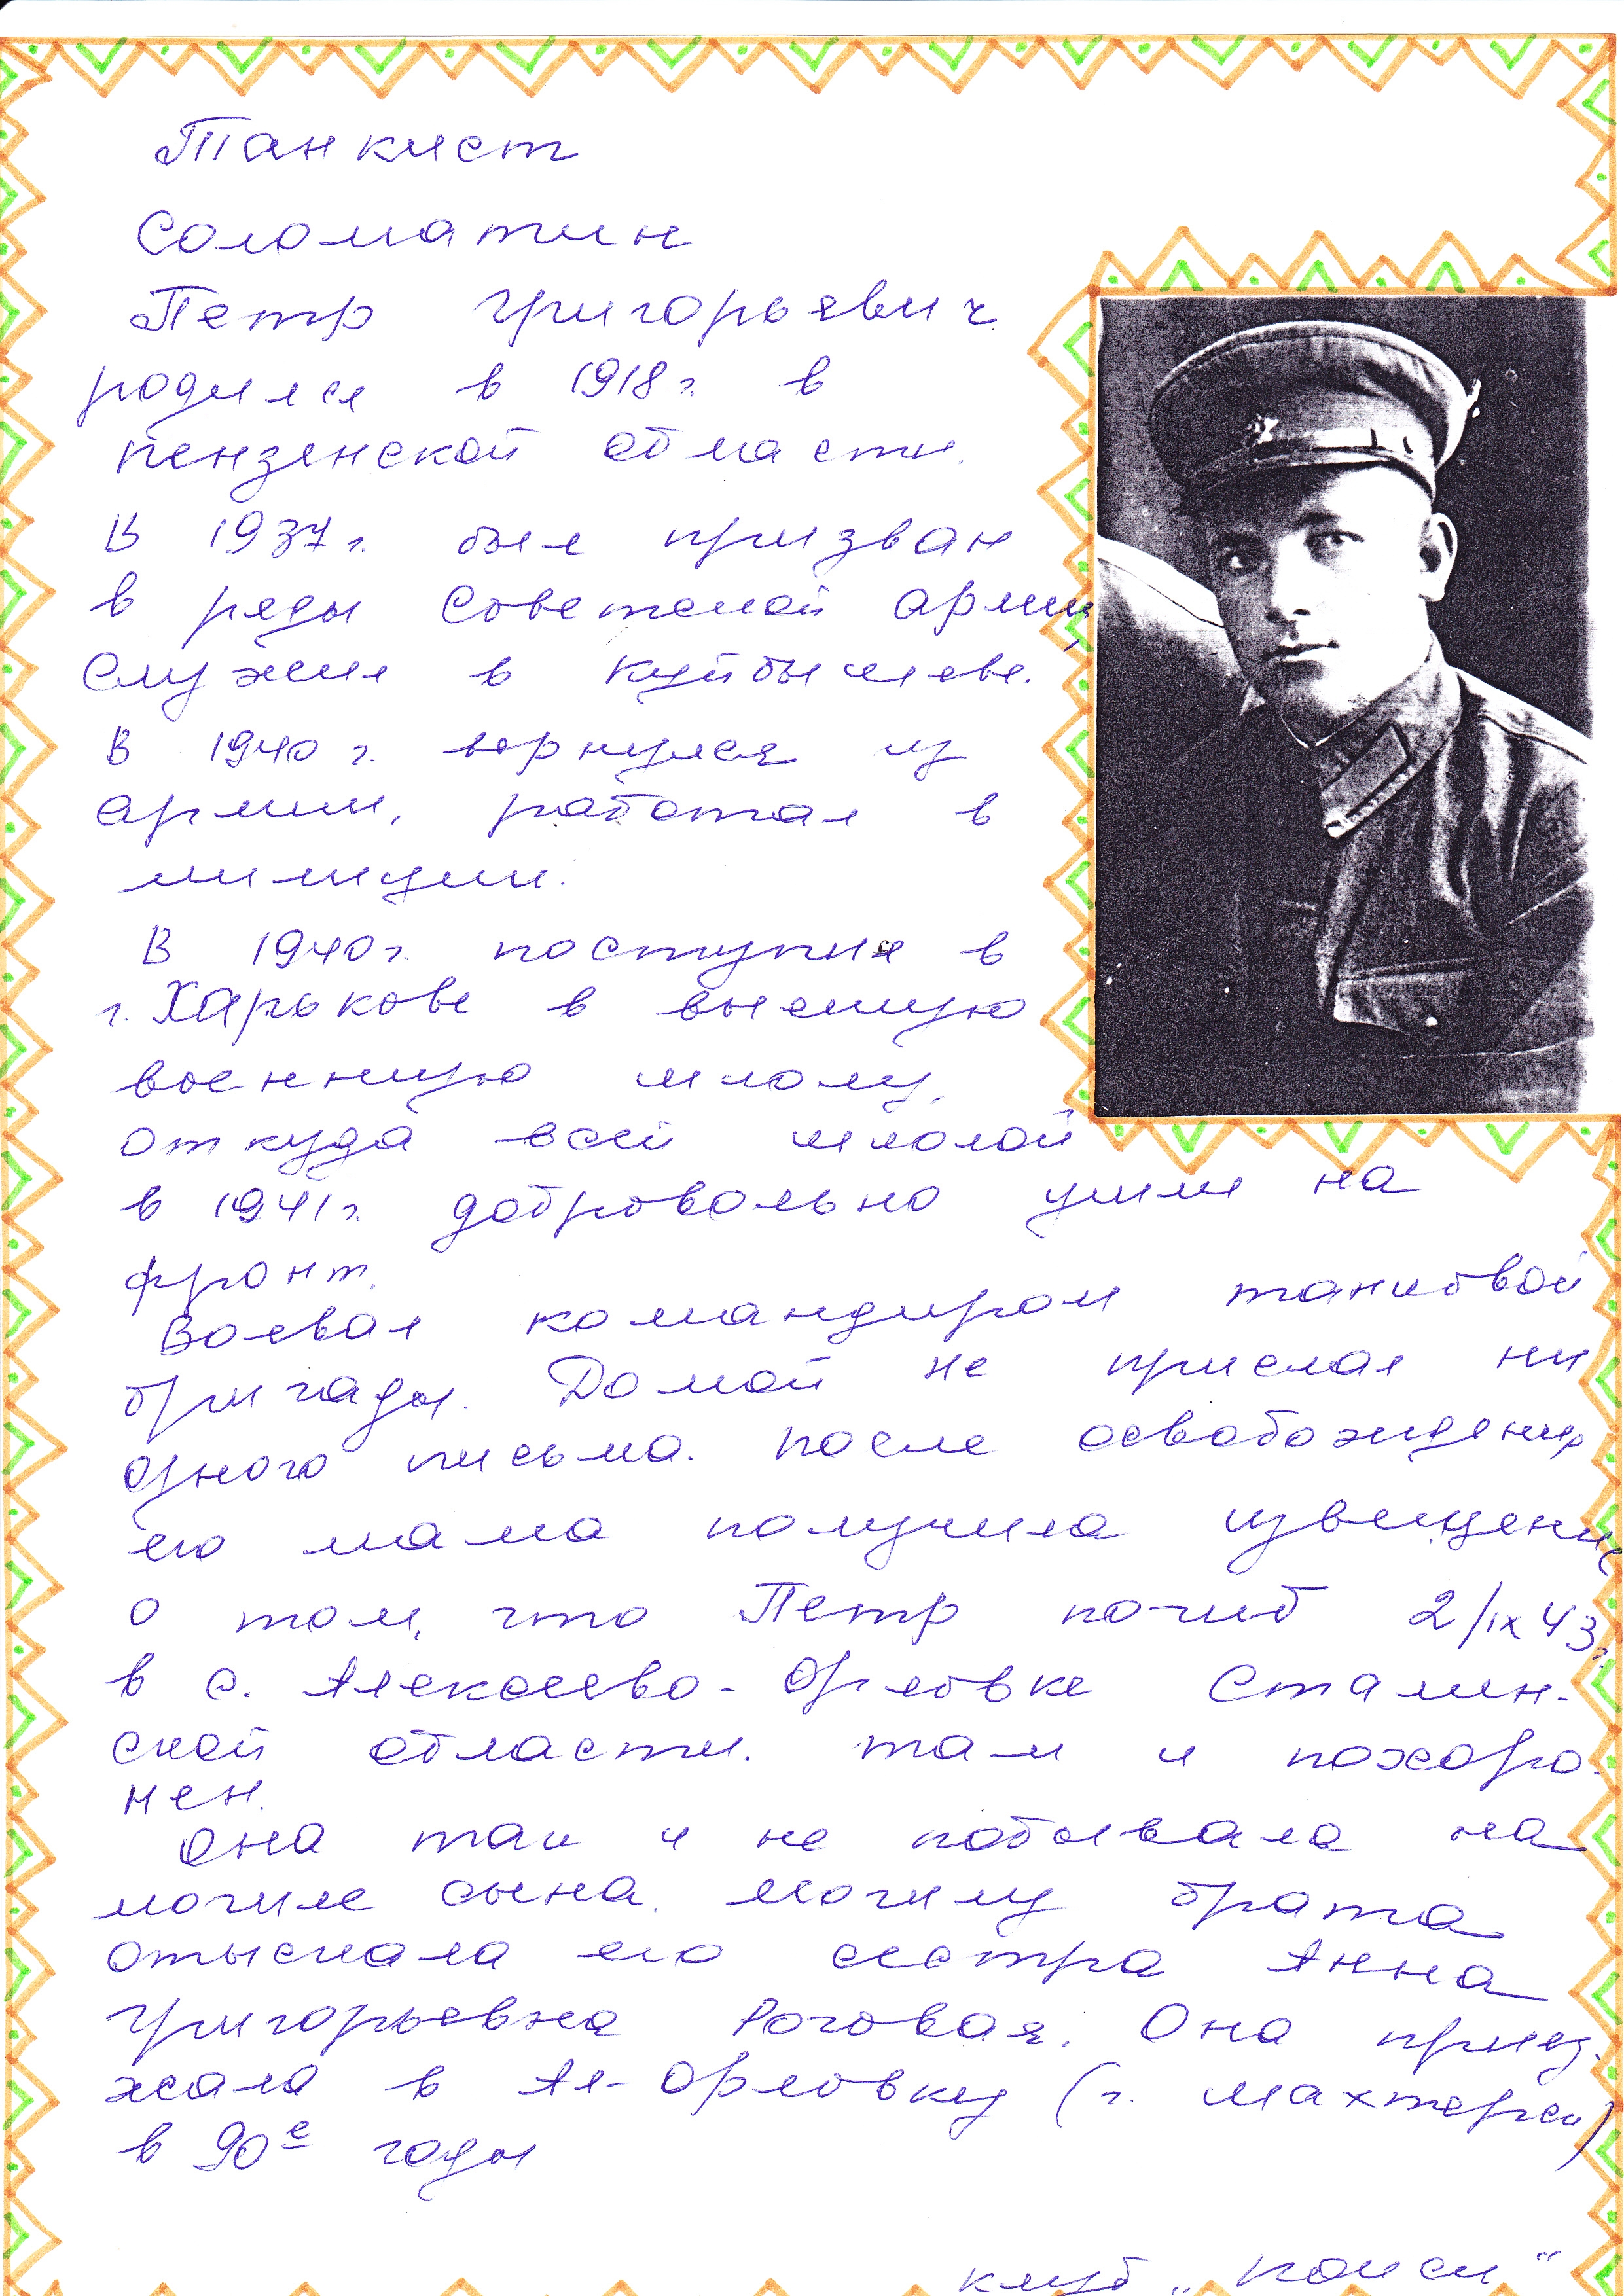 Танкист
Соломатин
Петр Григорьявич
родился в 1918 г. в
пензенской области.
В 1937 г. был призван
в ряды Советской армии,
служил в Куйбышеве.
В 1940 г. вернулся из
армии, работал в
милиции.
В 1940 г. поступил в
г. Харькове в высшую
военную школу,
откуда всей школой
в 1941 г. добровольно ушли на
фронт.
Воевал командиром танковой
бригады. Домой не прислал ни
одного письма. после освобождения
его мама получила извещение
о том, что Петр погиб 2/IX 43г.
в с. Алексеево-Орловке Сталин-
ской области. там и похоро-
нен.
Она так и не побывала на
могиле сына. могилу брата
отыскала его сестра Анна
Григорьевна Роговая. Она приез-
жала в Ал-Орловку (г. Шахтерск)
в 90е годы
клуб „Поиск“